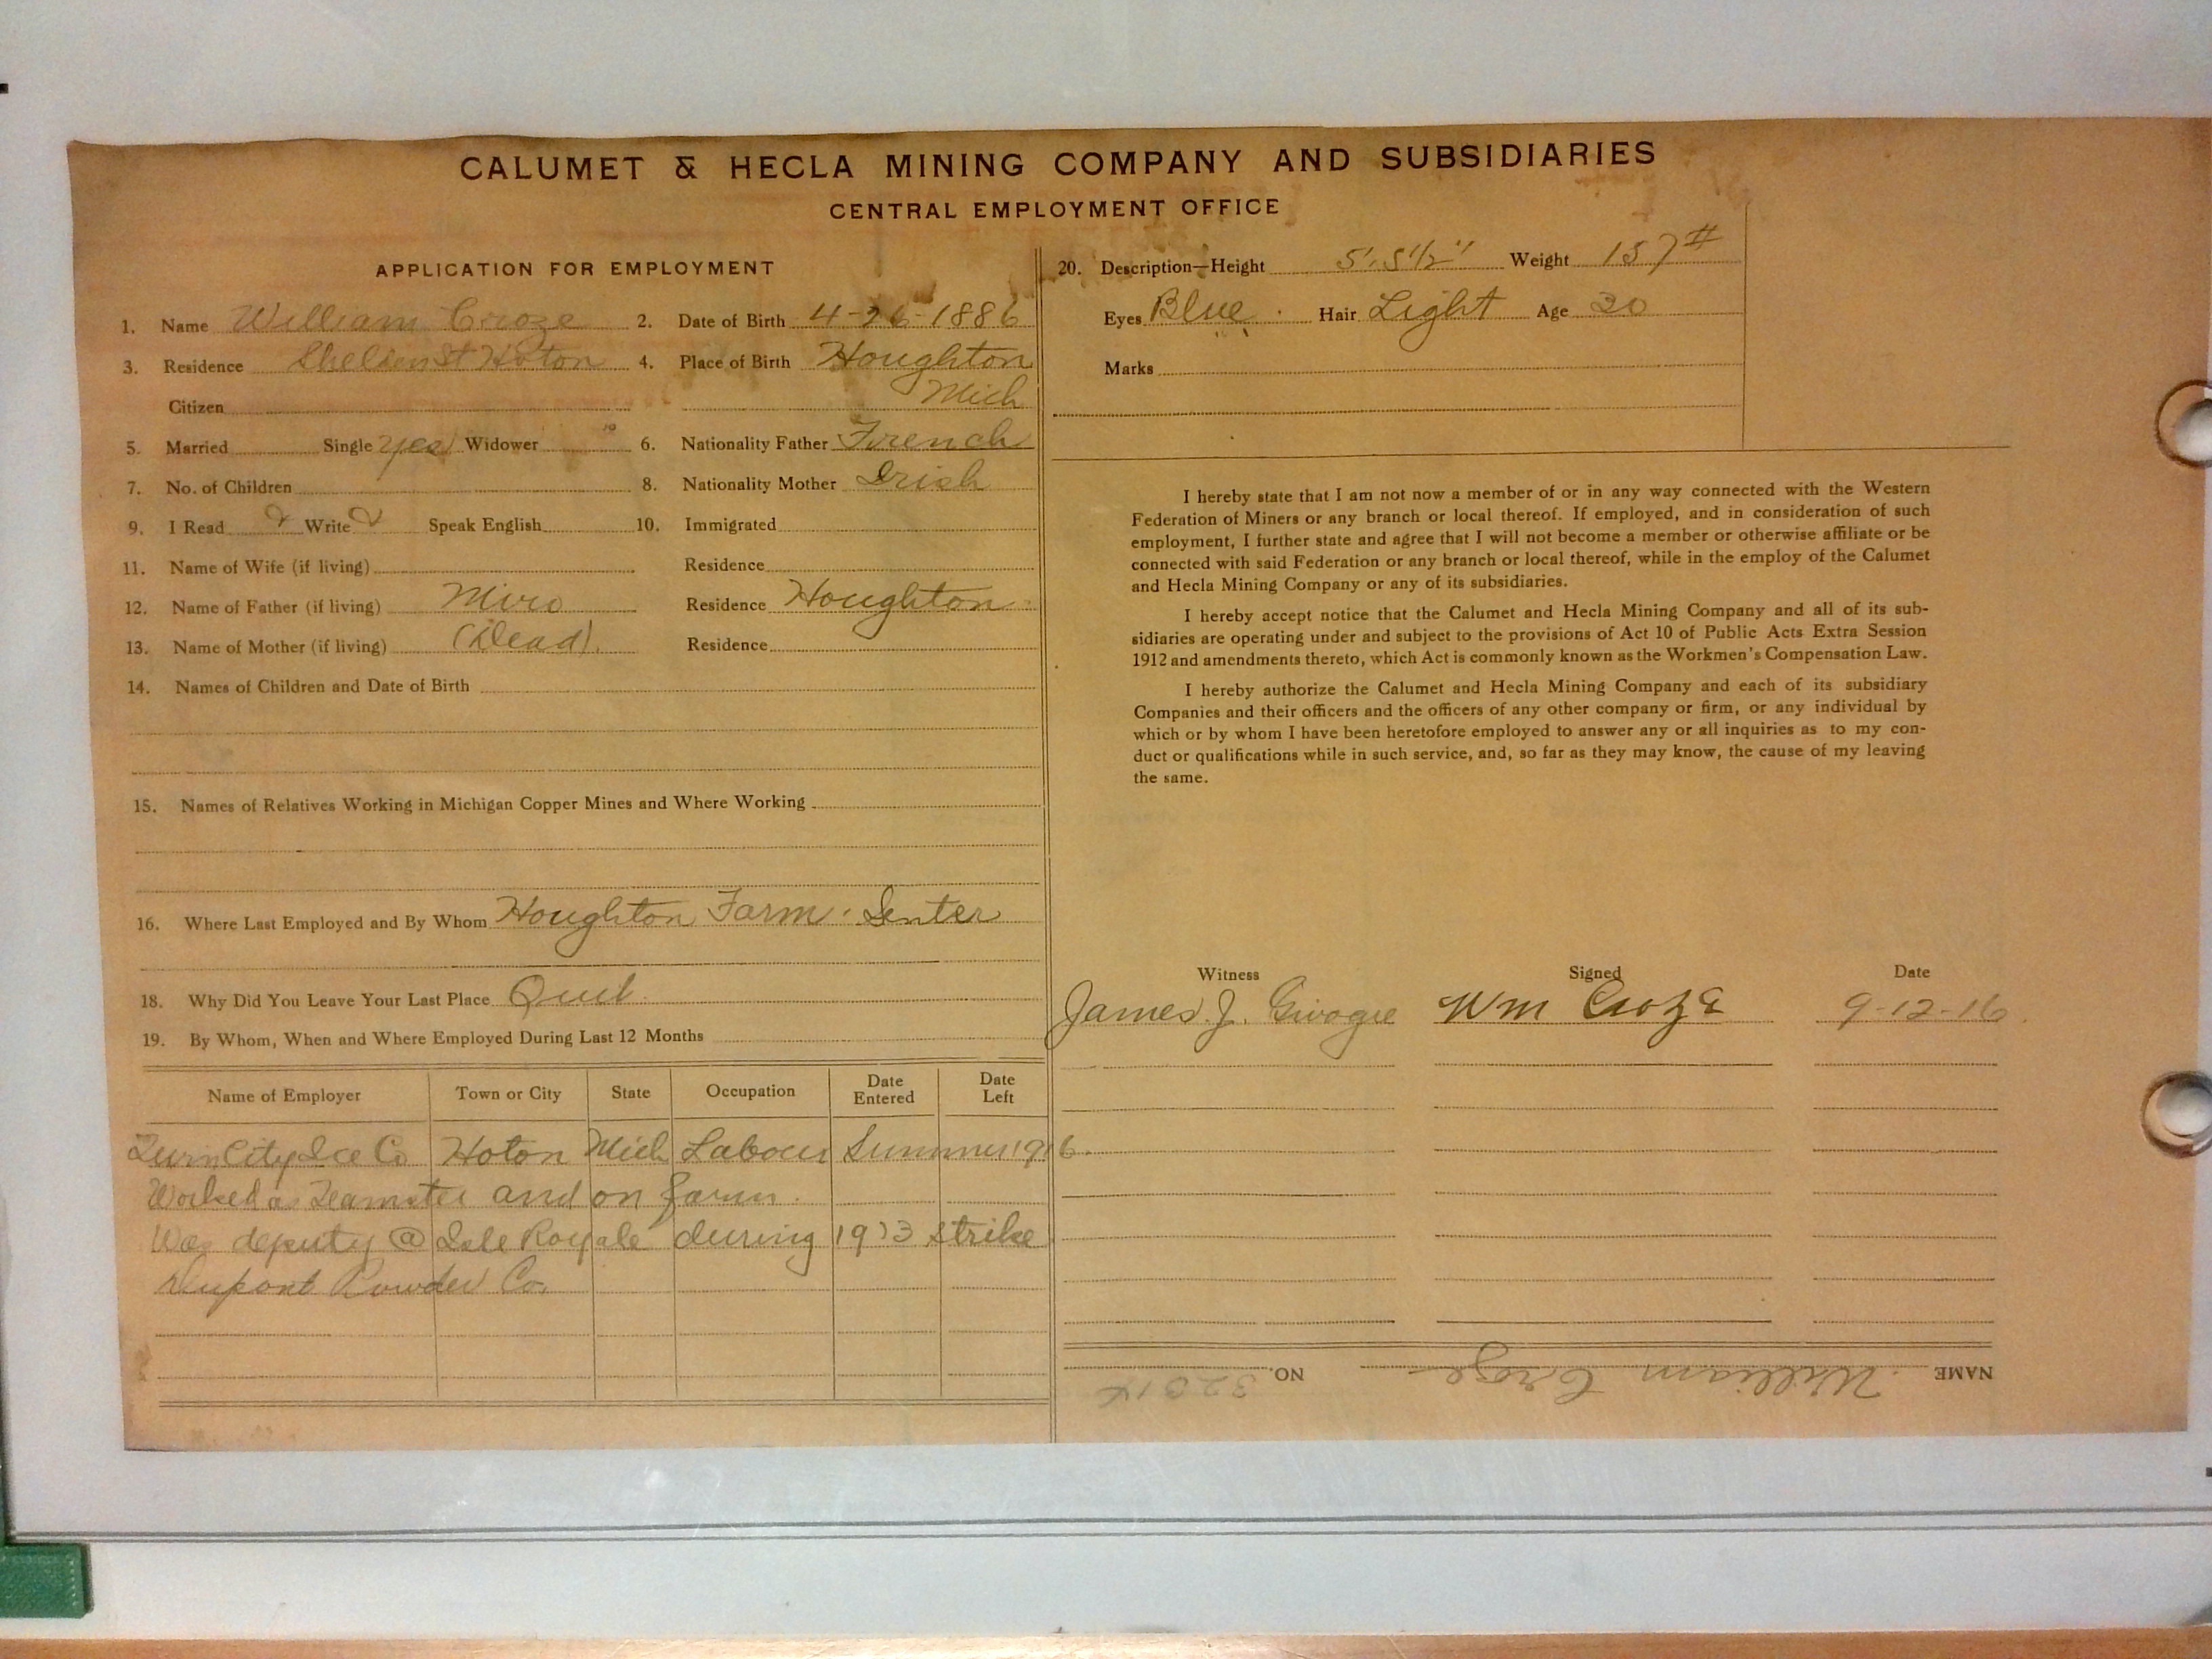 CALUMET & HECLA MINING COMPANY AND SUBSIDIARIES
CENTRAL EMPLOYMENT OFFICE
APPLICATION FOR EMPLOYMENT
1. Name William Croze 2. Date of Birth 4-26-1886
3. Residence Shelden St Hoton 4. Place of Birth Houghton
Citizen Mich
5. Married Single yes Widower 6. Nationality Father French
7. No. of Children 8. Nationality Mother Irish
9. I Read Write Speak English 10. Immigrated
11. Name of Wife (if living) Residence
12. Name of Father (if living) Residence Houghton
13. Name of Mother (if living) (Dead). Residence
14. Names of Children and Date of Birth
15. Names of Relatives Working in Michigan Copper Mines and Where Working
16. Where Last Employed and By Whom Houghton Farm. Senter
18. Why Did You Leave Your Last Place Quit
19. By Whom, When and Where Employed During Last 12 Months
Name of Employer Town or City State Occupation Date Entered Date Left
Twin City Ice Co Hoton Mich Labour Summer 1916.
Worked as Teamster and on farm.
Was deputy @ Isle Royale during 1913 strike
Dupont Powder Co.
20. Description—Height 5' 5 1/2" Weight 157#
Eyes Blue Hair Light Age 30
Marks
I hereby state that I am not now a member of or in any way connected with the Western
Federation of Miners or any branch or local thereof. If employed, and in consideration of such
employment, I further state and agree that I will not become a member or otherwise affiliate or be
connected with said Federation or any branch or local thereof, while in the employ of the Calumet
and Hecla Mining Company or any of its subsidiaries.
I hereby accept notice that the Calumet and Hecla Mining Company and all of its sub-
sidiaries are operating under and subject to the provisions of Act 10 of Public Acts Extra Session
1912 and amendments thereto, which Act is commonly known as the Workmen's Compensation Law.
I hereby authorize the Calumet and Hecla Mining Company and each of its subsidiary
Companies and their officers and the officers of any other company or firm, or any individual by
which or by whom I have been heretofore employed to answer any or all inquiries as to my con-
duct or qualifications while in such service, and, so far as they may know, the cause of my leaving
the same.
Witness Signed Date
James J. Wm Croze 9-12-16
NAME William Croze NO.